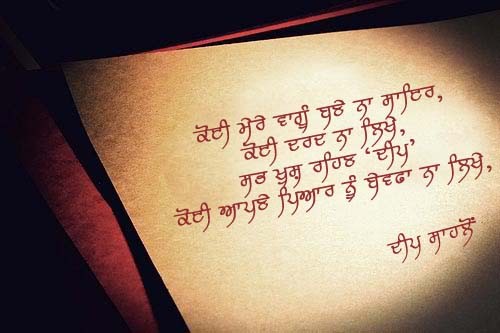 ਕੋਈ ਮੇਰੇ ਵਾਗੂੰ ਬਣੇ ਨਾ ਸਾਇਰ,
ਕੋਈ ਦਰਦ ਨਾ ਲਿਖੇ,
ਸਭ ਖੁਸ਼ ਰਹਿਣ ‘ਦੀਪ’
ਕੋਈ ਆਪਣੇ ਪਿਆਰ ਨੂੰ ਬੇਵਫਾ ਨਾ ਲਿਖੇ,
ਦੀਪ ਸਾਹਲੋਂ